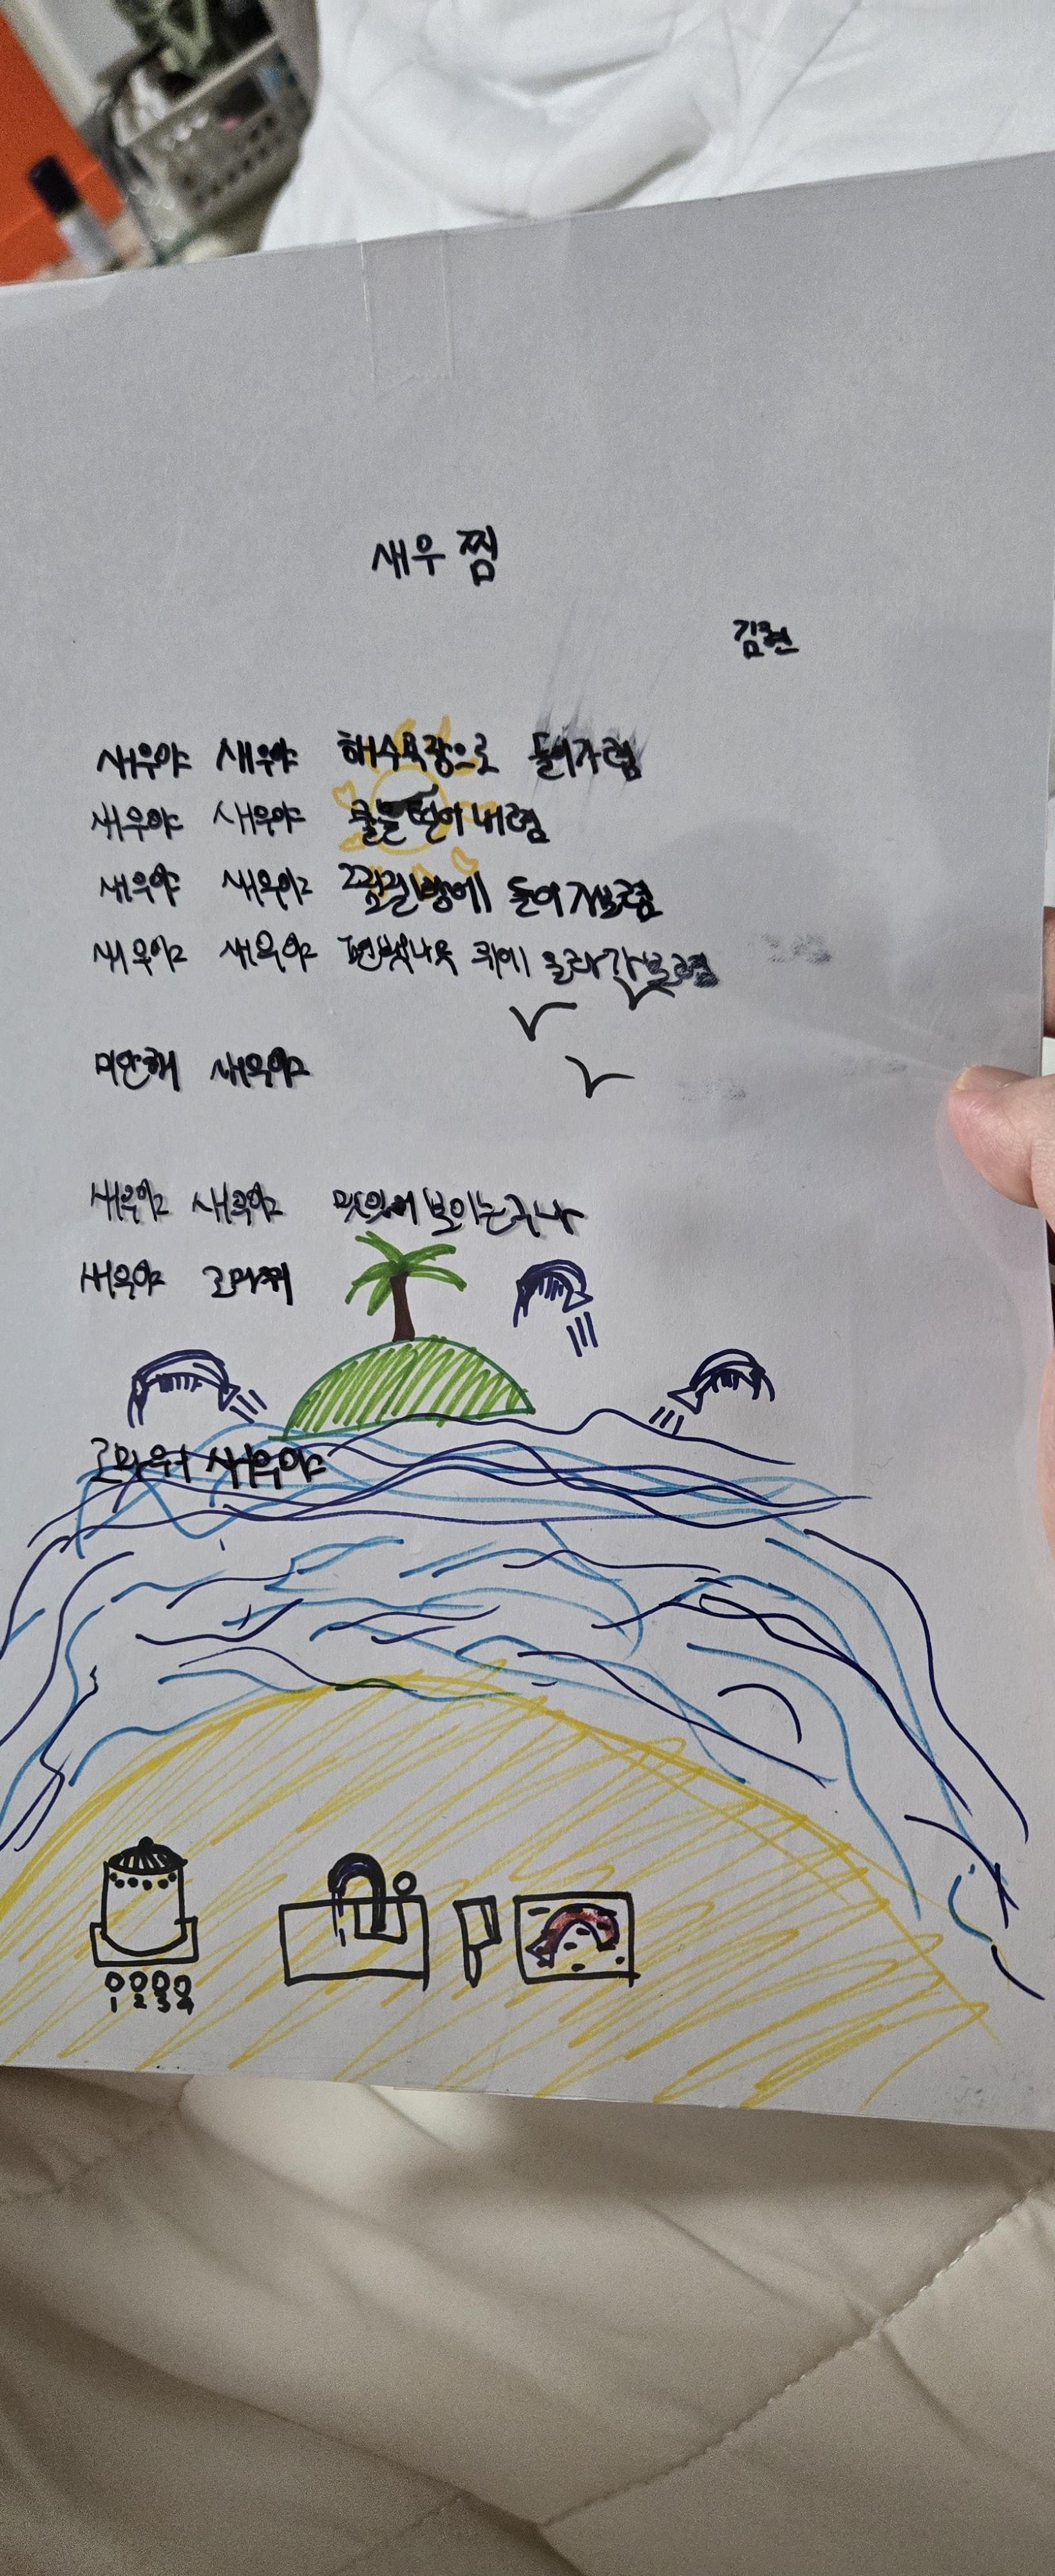 새우 찜
김현
새우야 새우야 해수욕장으로 들어가렴
새우야 새우야 물을 떧어 내렴
새우야 새우야 찜질방에 들어가보렴
새우야 새우야 편백나무 위에 올라가보렴
미안해 새우야
새우야 새우야 맛있어 보이는구나
새우야 고마워
고마워 새우야
1 2 3 4